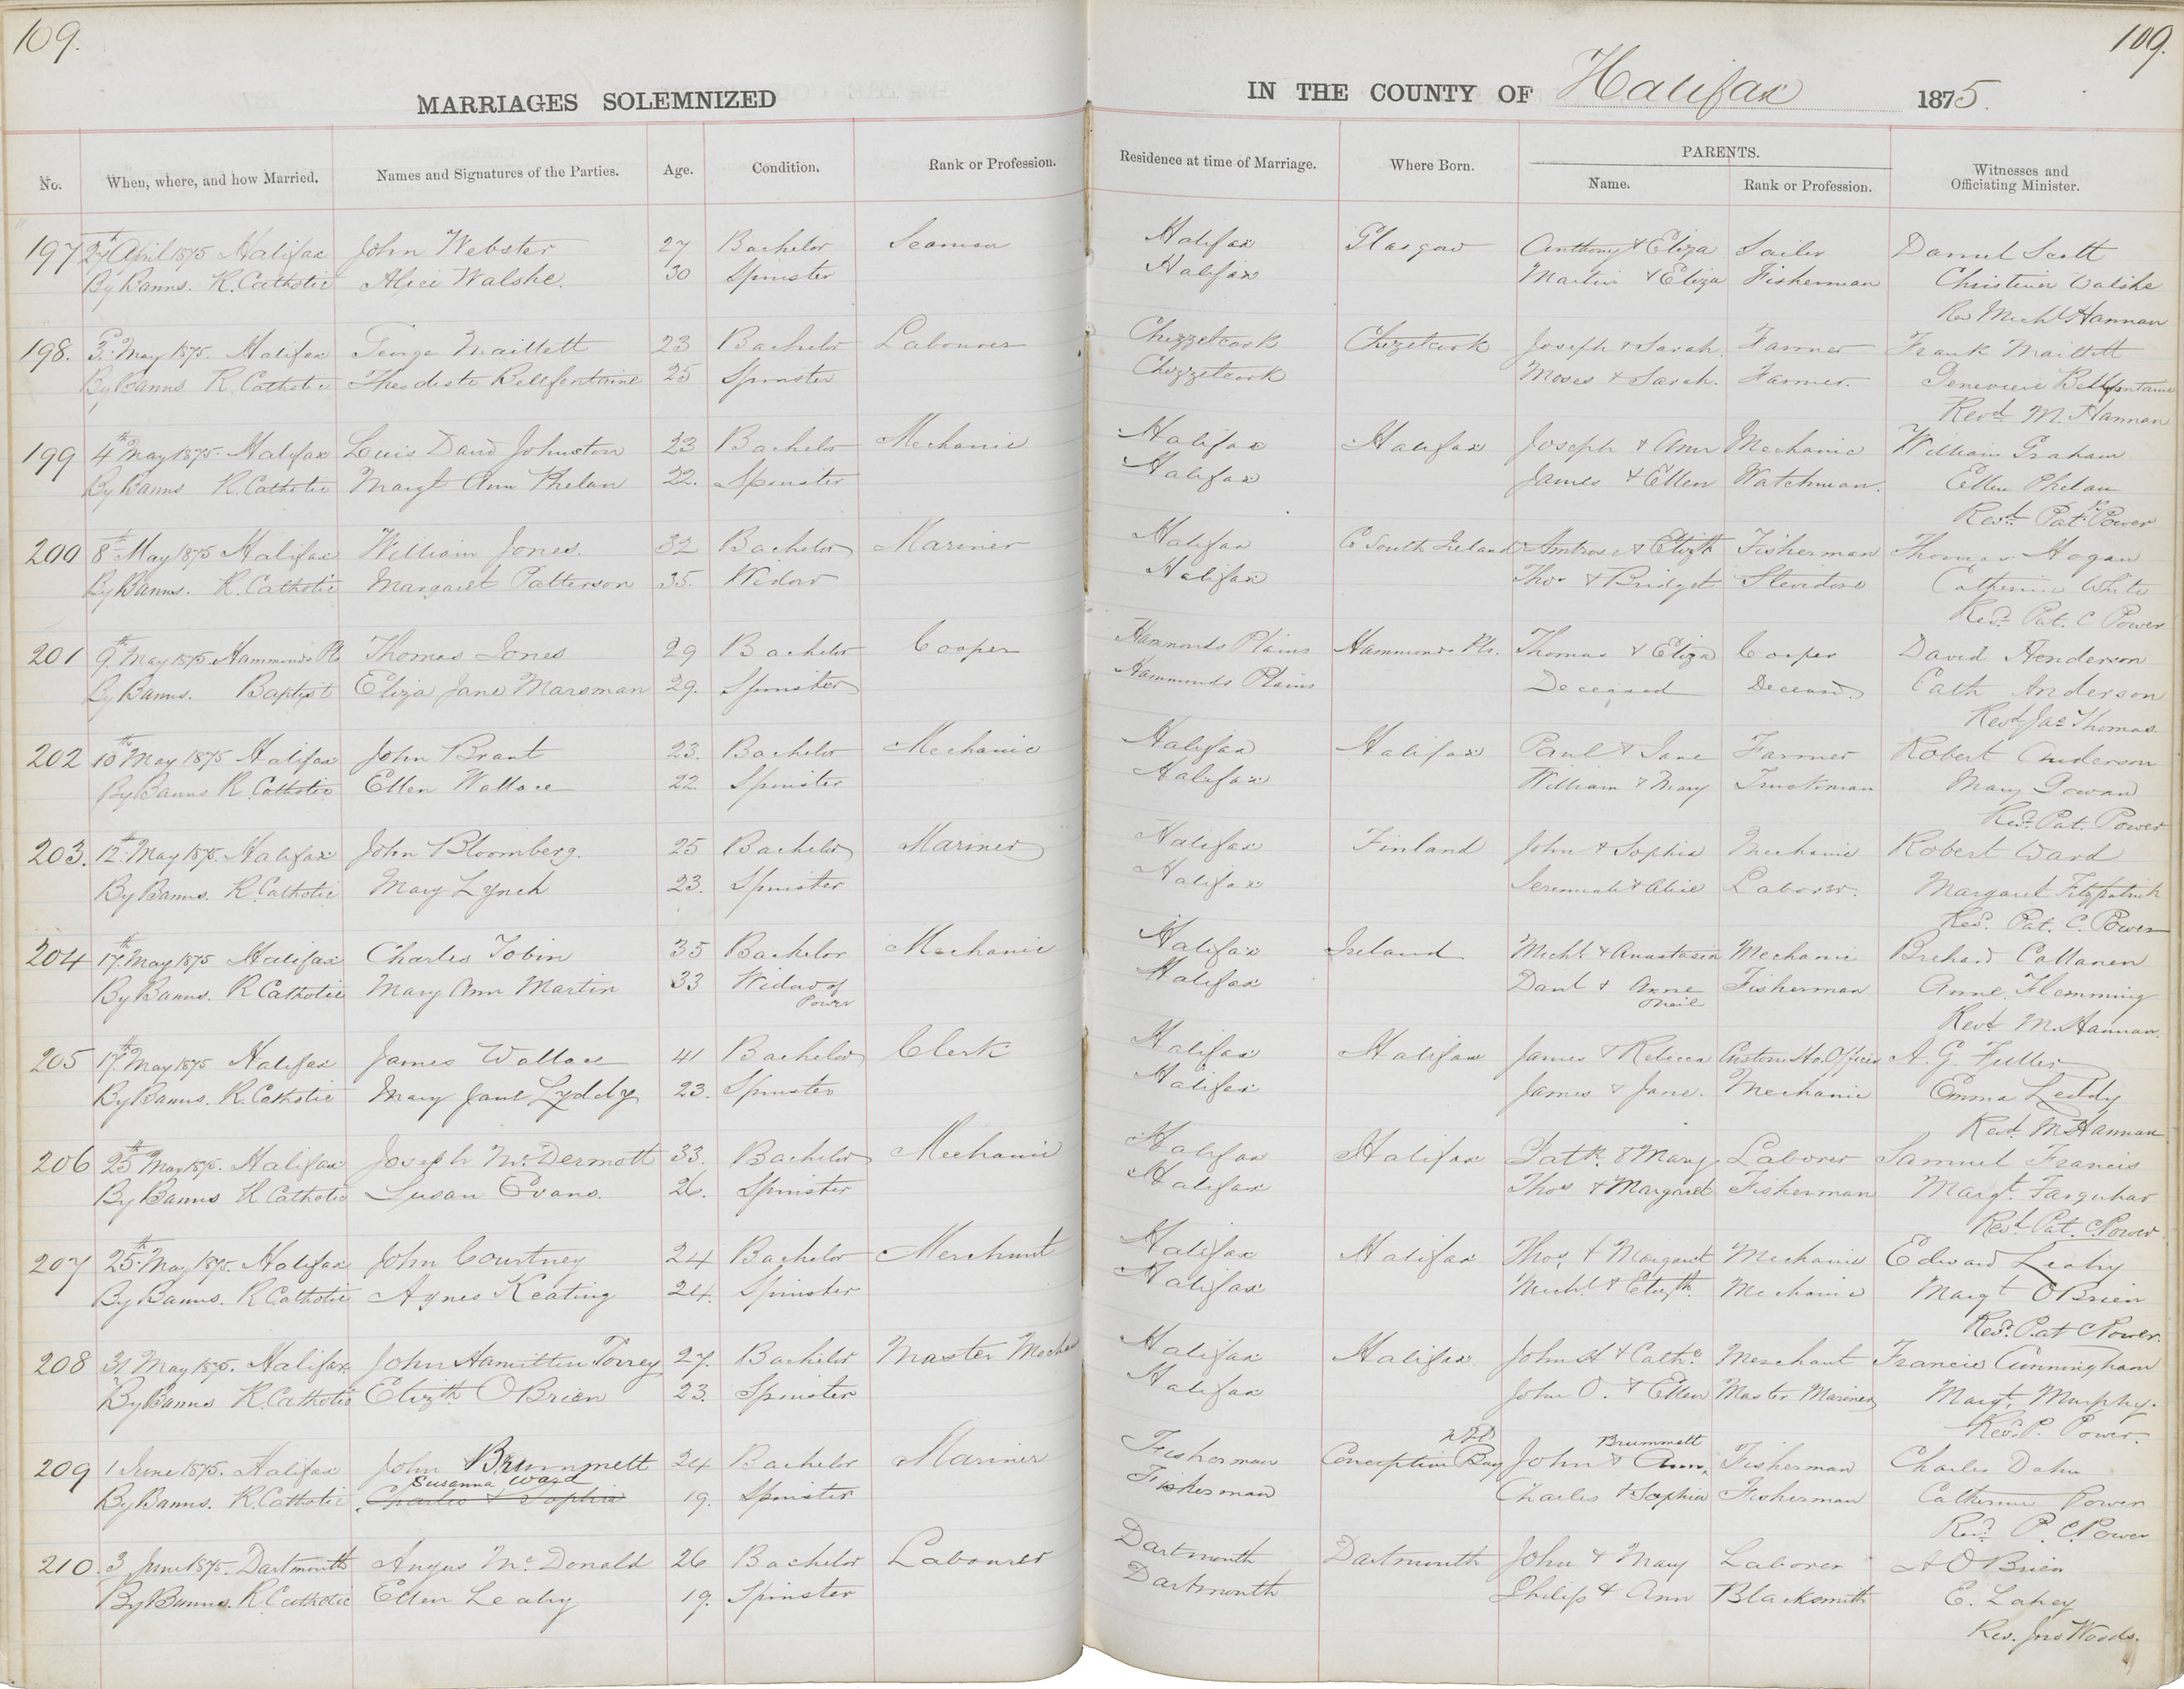 109.
109.
MARRIAGES SOLEMNIZED
IN THE COUNTY OF Halifax 1875.
No. When, where, and how Married. Names and Signatures of the Parties. Age. Condition. Rank or Profession. Residence at time of Marriage. Where Born. PARENTS. Name. Rank or Profession. Witnesses and Officiating Minister.
197 27th April 1875 Halifax John Webster 27 Bachelor Seaman Halifax Glasgow Anthony & Eliza Sailor Daniel Scott
By Banns. R. Catholic Alice Walshe. 30 Spinster Halifax Martin & Eliza Fisherman Christina Walshe
Rev Michl Hannan
198. 3d May 1875. Halifax George Maillett 23 Bachelor Labourer Chezzetcook Chezetcook Joseph & Sarah. Farmer Frank Maillett
By Banns R. Catholic Theodiste Bellfontaine 25 Spinster Chezzetcook Moses & Sarah. Farmer. Genevieve Bellfontaine
Revd M. Hannan
199 4th May 1875. Halifax Luis David Johnston 23 Bachelor Mechanic Halifax Halifax Joseph & Ann Mechanic William Graham
By Banns R. Catholic Margt Ann Phelan 22. Spinster Halifax James & Ellen Watchman. Ellen Phelan
Revd. Patk Power
200 8th May 1875 Halifax William Jones. 32 Bachelor Mariner Halifax Co South Ireland Ambrose & Elizth Fisherman Thomas Hogan
By Banns. R. Catholic Margaret Patterson 35. Widow Halifax Thos & Bridget Stevidore Catherine White
Revd. Pat. C Power
201 9th May 1875. Hammonds Pls Thomas Jones 29 Bachelor Cooper Hammonds Plains Hammonds Pls. Thomas & Eliza Cooper David Henderson
By Banns. Baptist Eliza Jane Marsman 29. Spinster Hammonds Plains Deceased Deceased Cath Anderson
Revd Jas Thomas
202 10th May 1875 Halifax John Brant 23. Bachelor Mechanic Halifax Halifax Paul & Jane Farmer Robert Anderson
By Banns R. Catholic Ellen Wallace 22. Spinster Halifax William & Mary Truckman Mary Gowan
Revd. Pat. Power
203. 12th May 1875. Halifax John Bloomberg. 25 Bachelor Mariner Halifax Finland John & Sophia Mechanic Robert Ward
By Banns. R. Catholic Mary Lynch 23. Spinster Halifax Jeremiah & Alice Laborer. Margaret Fitzpatrick
Revd. Pat. C. Power
204 17th May 1875 Halifax Charles Tobin 35 Bachelor Mechanic Halifax Ireland Michl. & Anastasia Mechanic Callanen
By Banns. R Catholic Mary Ann Martin 33 Widow of Power Halifax Danl & Anne Oneil Fisherman Anne Flemming
Revd M. Hannan.
205 17th May 1875 Halifax James Wallace 41 Bachelor Clerk Halifax Halifax James & Rebecca Customs Ho. Officer A. G. Fuller
By Banns. R. Catholic Mary Jane Lyddy 23. Spinster Halifax James & Jane. Mechanic Emma Leddy
Revd. M Hannan
206 25th May 1875. Halifax Joseph McDermott 33. Bachelor Mechanic Halifax Halifax Patk. & Mary Laborer Samuel Francis
By Banns R Catholic Susan Evans. 26. Spinster Halifax Thos & Margaret Fisherman Margt. Farquhar
Revd Pat. C Power
207 25th May 1875. Halifax John Courtney 24 Bachelor Merchant Halifax Halifax Thos. & Margaret Mechanic Edward Leahy
By Banns. R Catholic Agnes Keating 24. Spinster Halifax Michl. & Elizth. Mechanic Margt O Brien
Revd. Pat C Power.
208 31 May 1875. Halifax John Hamilton Torrey 27. Bachelor Master Mechan Halifax Halifax John H & Cathe Merchant Francis Cunningham
By Banns R. Catholic Elizth. O Brien 23. Spinster Halifax John O. & Ellen Master Mariner Margt. Murphy.
Revd. P. Power.
209 1 June 1875. Halifax John Brummett 24 Bachelor Mariner Fisherman Conception Bay NFD John & Ann Brummett Fisherman Charles Dahn
By Banns. R. Catholic Susanna Ward Charles & Sophia 19. Spinster Fisherman Charles & Sophia Fisherman Catherine Power
Revd. P. C. Power
210. 3 June 1875. Dartmouth Angus McDonald 26 Bachelor Labourer Dartmouth Dartmouth John & Mary Laborer A O Brien
By Banns. R Catholic Ellen Leahy 19. Spinster Dartmouth Philip & Ann Blacksmith E. Lahey
Rev. Jno Woods.